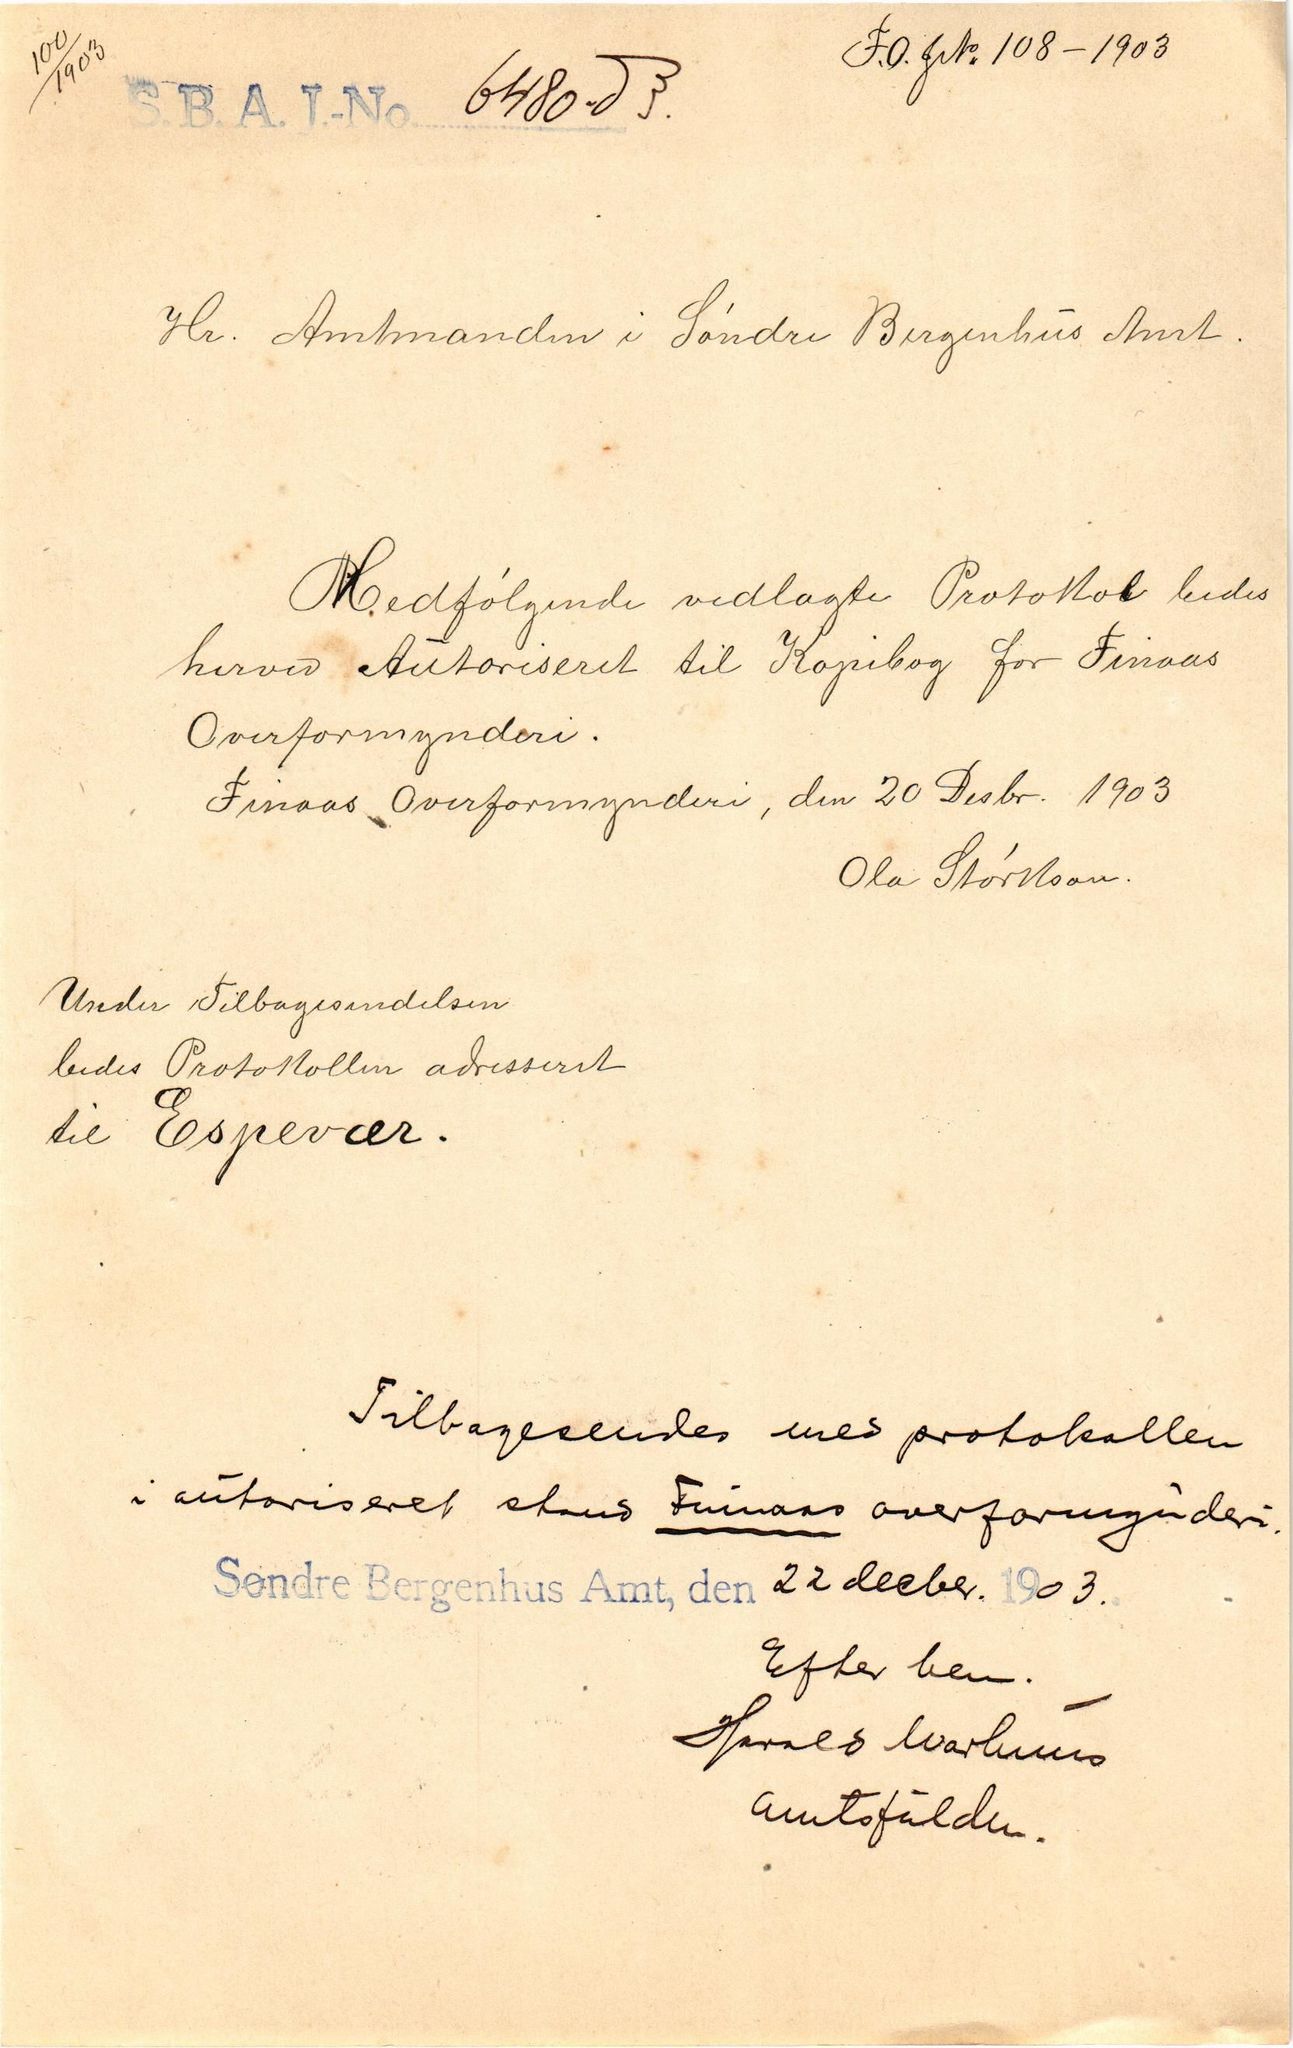 100/1903
F.O. J.N. 108 - 1903
S.B.A. J.-No. 6480-03.
Hr. Amtmanden i Søndre Bergenhus Amt.
Medfølgende vedlagte Protokol bedes
herved Autoriseret til Kopibog for Finaas
Overformynderi.
Finaas Overformynderi, den 20 Desbr. 1903
Ola Størkson.
Under Tilbagesendelsen
bedes Protokollen adresseret
til Espevær.
Tilbagesendes med protokollen
i autoriseret stand Finnaas overformynderi.
Søndre Bergenhus Amt, den 22 decber. 1903.
Efter bem.
Harald
amtsfuldm.